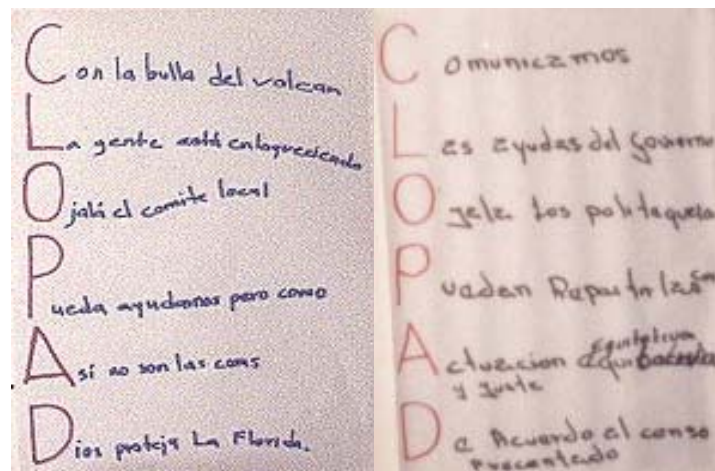 Con la bulla del volcan
La gente está enloqueciendo
Ojalá el comite local
Pueda ayudarnos pero como
Así no son las cosas
Dios proteja La Florida.
Comunicamos
Las ayudas del Govierno
Ojala Los politiqueros
Puedan Repartirlas
equitativa
Actuacion
y juste
De Acuerdo al censo
Precentado